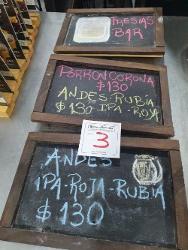 IGLESIAS
BAR
PORRON CORONA
$130
ANDES-RUBIA
$130 IPA-ROJA
3
ANDES
IPA-ROJA-RUBIA
$130